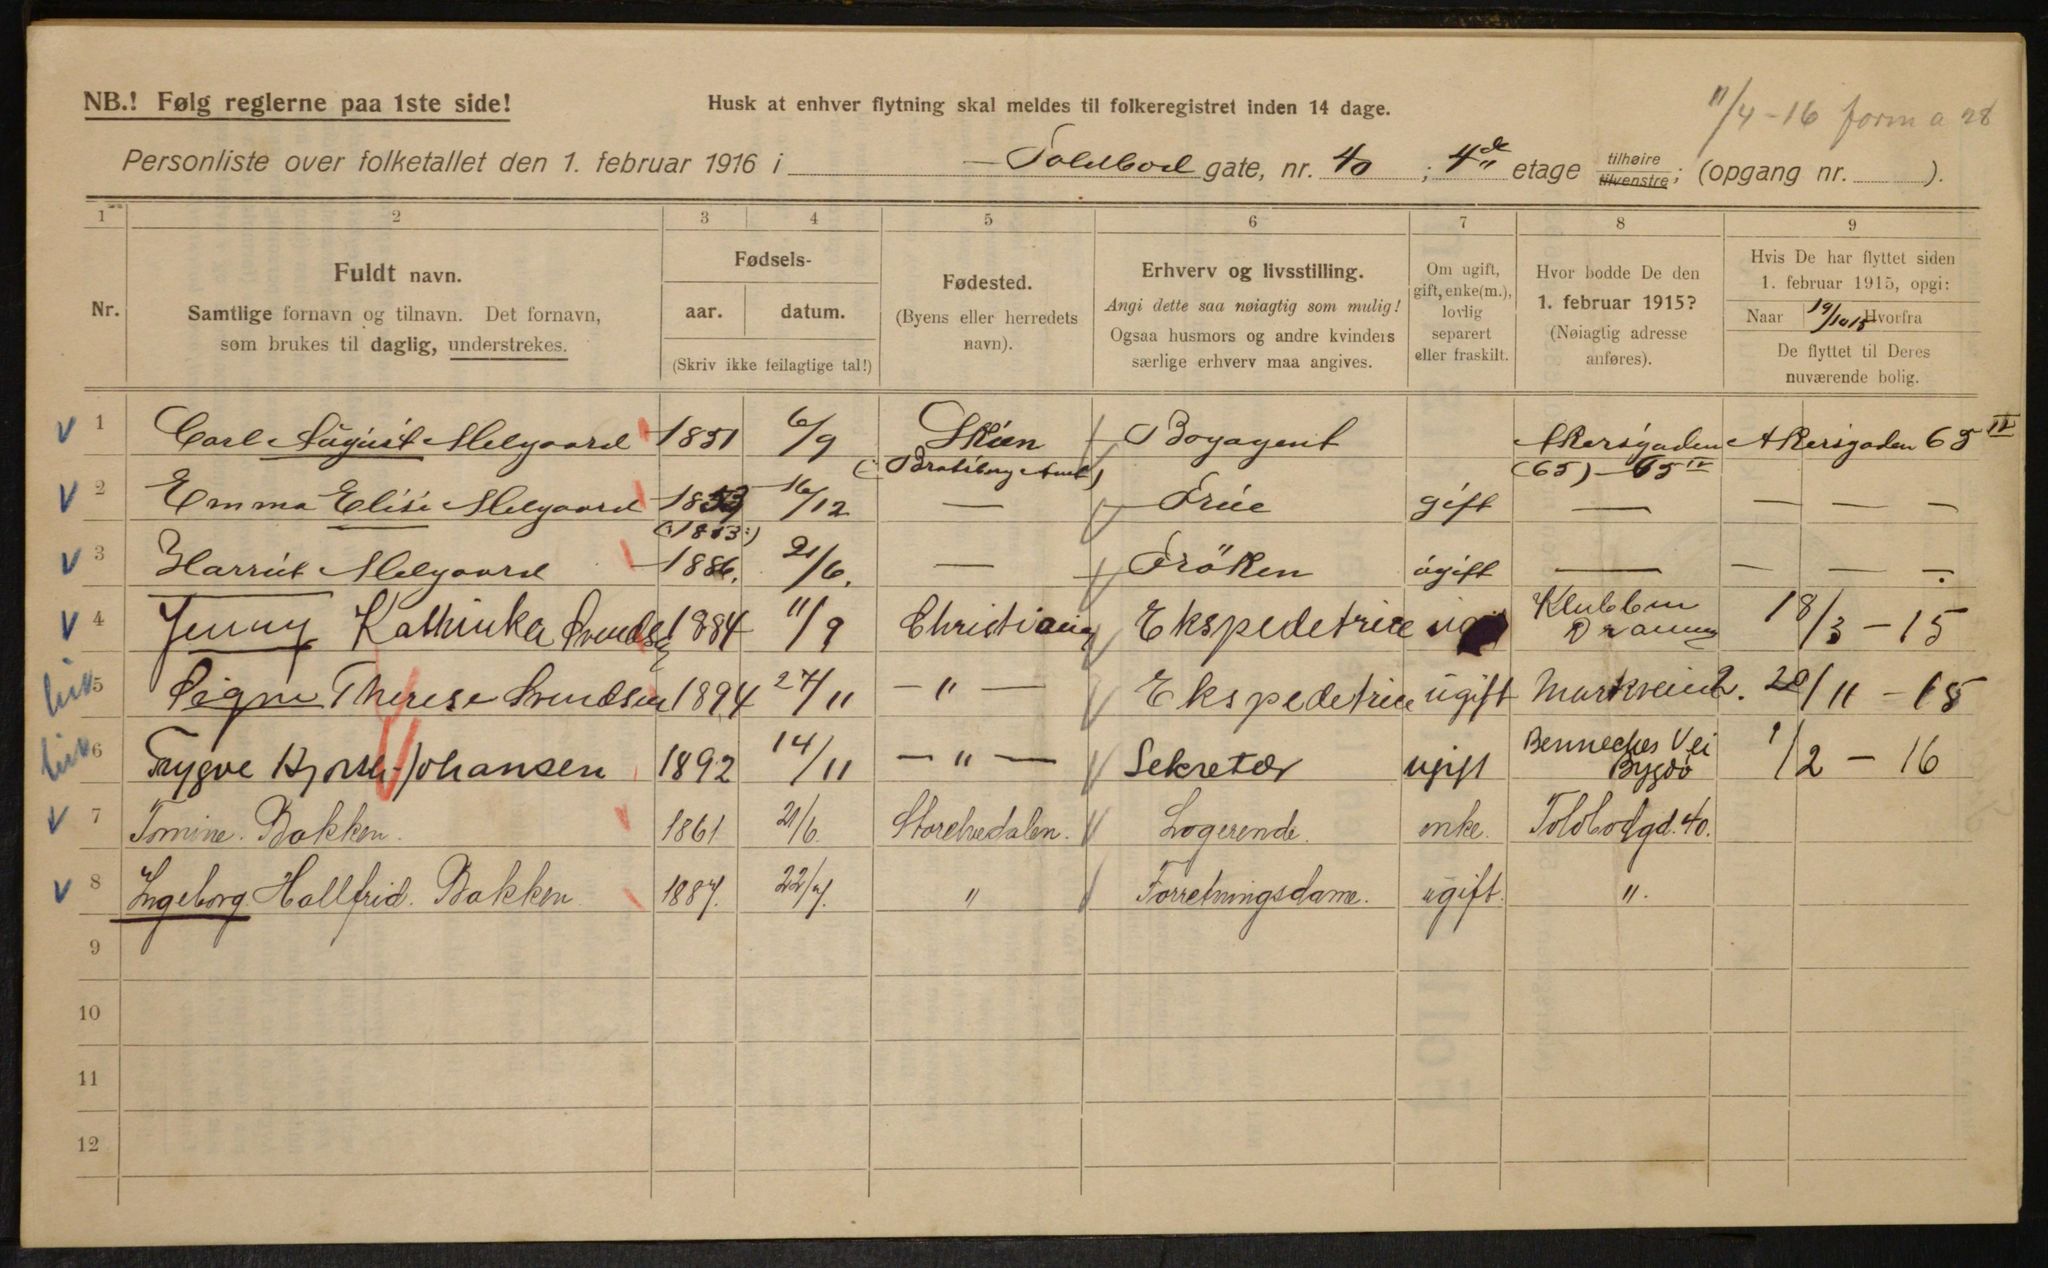 NB.! Følg reglerne paa 1ste side!
Husk at enhver flytning skal meldes til folkeregistret inden 14 dage.
11/4-16 form a 28
Personliste over folketallet den 1. februar 1916 i Toldbod gate, nr. 40 ; 4de etage tilhøire tilvenstre; (opgang nr. ).
1 2 3 4 5 6 7 8 9
Nr.
Fuldt navn.
Samtlige fornavn og tilnavn. Det fornavn,
som brukes til daglig, understrekes.
Fødsels-
aar. datum.
(Skriv ikke feilagtige tal!)
Fødested.
(Byens eller herredets
navn).
Erhverv og livsstilling.
Angi dette saa nøiagtig som mulig!
Ogsaa husmors og andre kvinders
særlige erhverv maa angives.
Om ugift,
gift, enke(m.),
lovlig
separert
eller fraskilt.
Hvor bodde De den
1. februar 1915?
(Nøiagtig adresse
anføres).
Hvis De har flyttet siden
1. februar 1915, opgi:
Naar 19/10 15 Hvorfra
De flyttet til Deres
nuværende bolig.
1 Carl August Melgaard 1851 6/9 Skien Bogagent Akersgaden Akersgaden 65 IV
(Bratsberg Amt) (65) - 65 IV
2 Emma Elise Melgaard 1853 16/12 — Frue gift — — — —
(:1853:)
3 Harriet Melgaard 1886. 21/6. — Fröken ugift — — — —
4 Jenny Kathinka Svendsen 1884 11/9 Christiania Ekspeditrice Klubben 18/3 - 15
Drammen
5 Signe Therese Svendsen 1894 24/11 — " — Ekspeditrice ugift 20/11 - 15
6 Trygve Johansen 1892 14/11 — " — Sekretær ugift Benneches Vei 1/2 - 16
Bygdø
7 Tomine Bakken. 1861 21/6 Storelvedalen. Logerende. enke. Toldbodgd. 40.
8 Ingeborg Hallfrid. Bakken 1887. 22/7. " Forretningsdame. ugift. ".
9
10
11
12